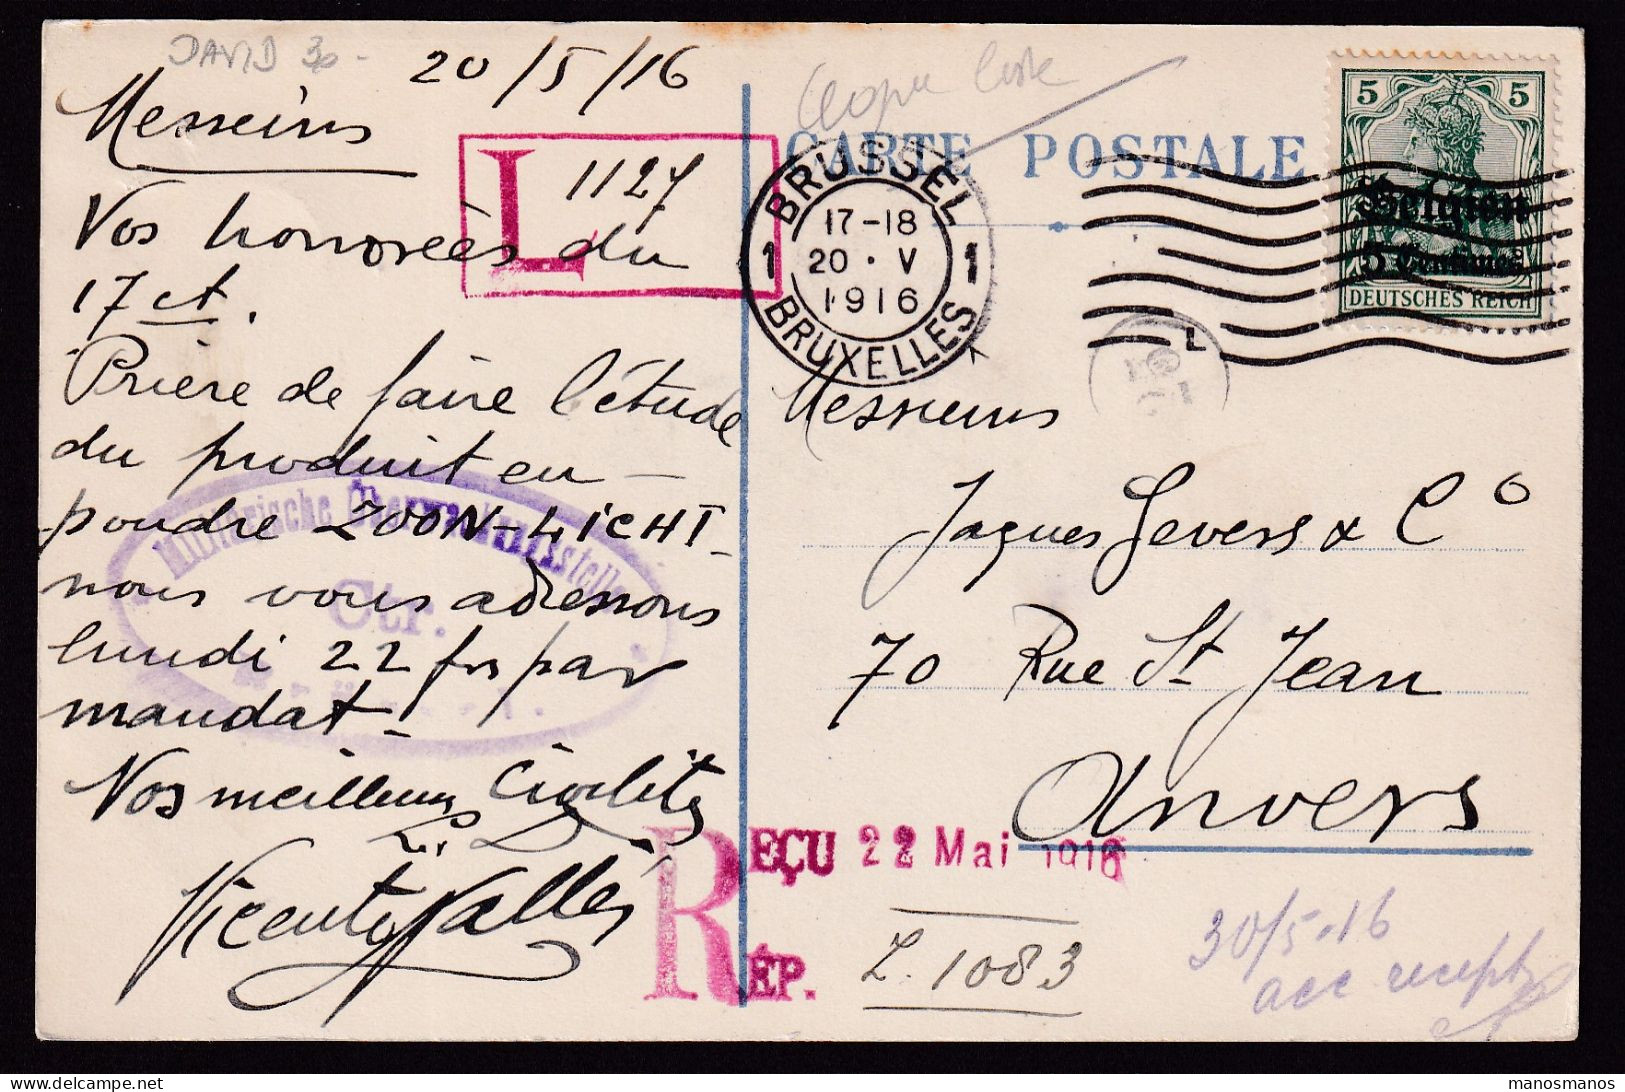 DAVID 30-
20/5/16
Messieurs
L 1127
Vos honorées du
17 ct.
Prière de faire l'étude
du produit en
poudre ZOON-LICHT
nous vous adressons
lundi 22 frs par
mandat.
Nos meilleures civilités
Vicente Vallés
Militärische Überwachungsstelle
Ctr.
CARTE POSTALE
BRUSSEL
1 17-18 1
20 · V
1916
BRUXELLES
L
5 5
Belgien
5 Centimes
DEUTSCHES REICH
Messieurs
Jaques Gevers & Co
70 Rue St Jean
Anvers
REÇU 22 Mai 1916
RÉP. L. 1083
30/5-16
acc recept
manosmanos